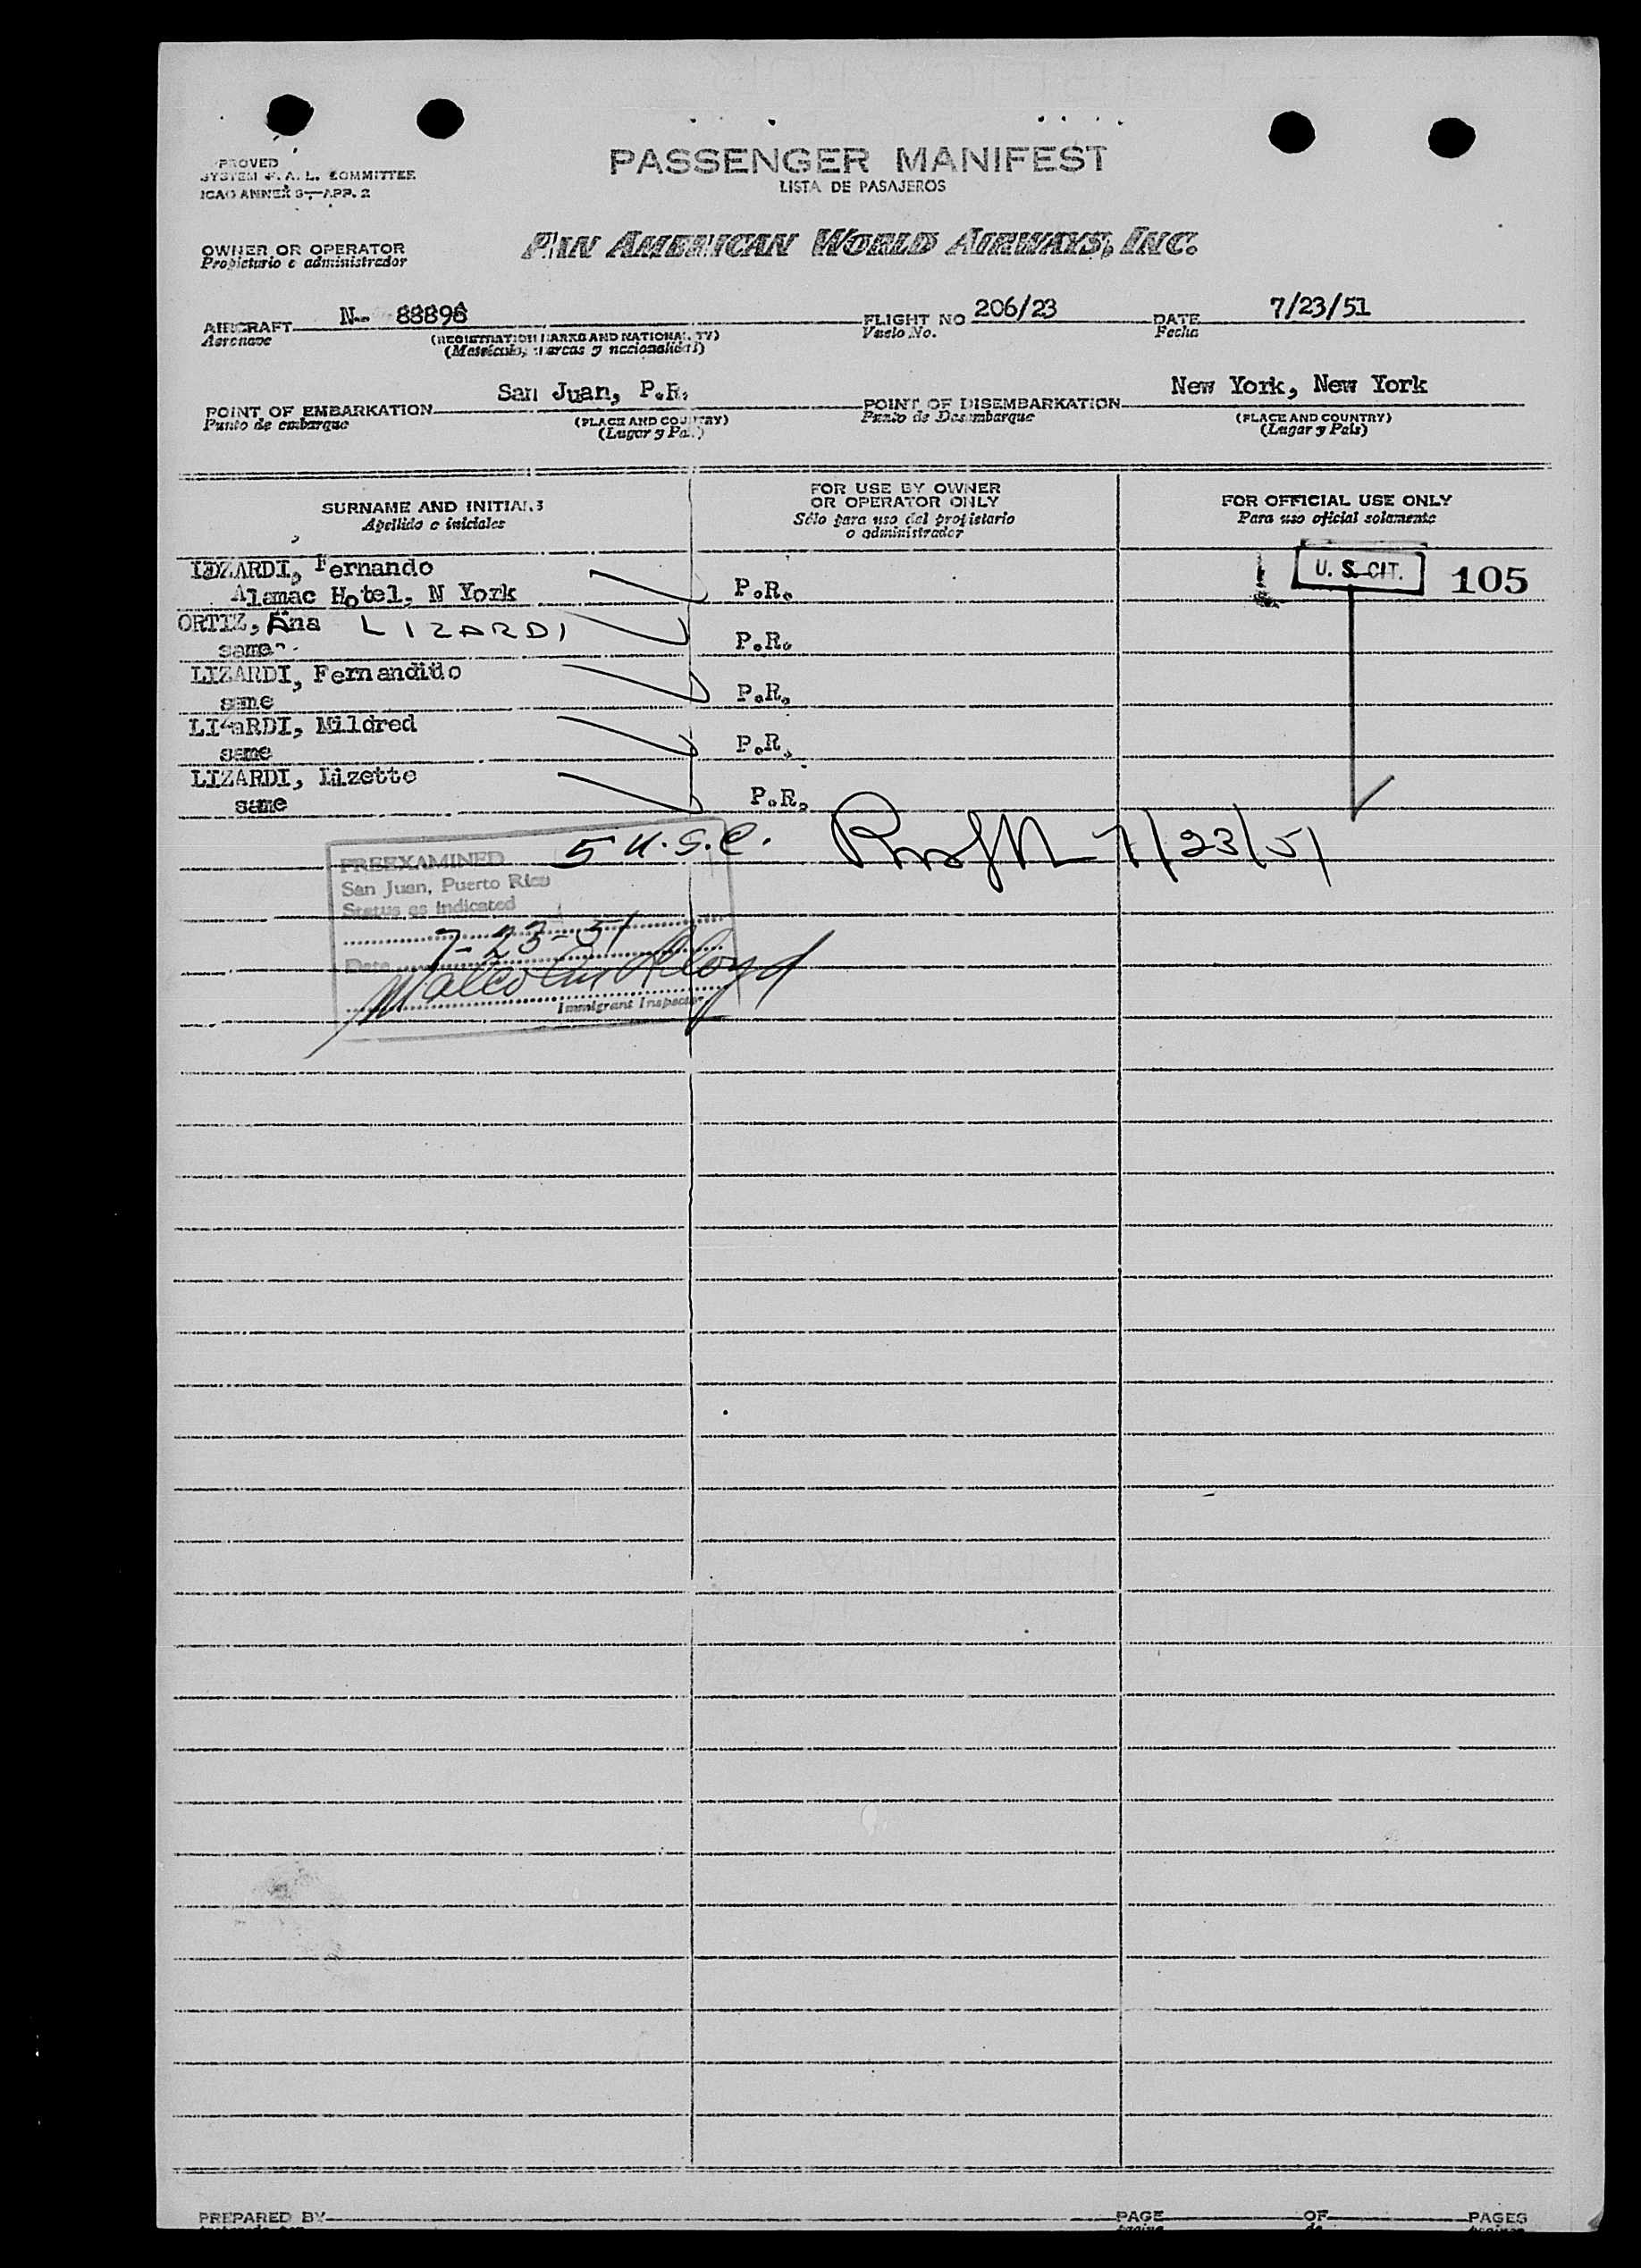 PASSENGER MANIFEST
LISTA DE PASAJEROS
PROVED
SYSTEM F. A. L. COMMITTEE
ICAO ANNEX 9—APP. 2
OWNER OR OPERATOR
Propietario o administrador
PAN AMERICAN WORLD AIRWAYS, INC.
AIRCRAFT N- 88898 FLIGHT NO 206/23 DATE 7/23/51
Aeronave (REGISTRATION MARKS AND NATIONALITY) Vuelo No. Fecha
(Matrícula, marcas y nacionalidad)
POINT OF EMBARKATION San Juan, P.R. POINT OF DISEMBARKATION New York, New York
Punto de embarque (PLACE AND COUNTRY) Punto de Desembarque (PLACE AND COUNTRY)
(Lugar y País) (Lugar y País)
SURNAME AND INITIALS
Apellido e iniciales
FOR USE BY OWNER
OR OPERATOR ONLY
Sólo para uso del propietario
o administrador
FOR OFFICIAL USE ONLY
Para uso oficial solamente
LIZARDI, Fernando
Alamac Hotel, N York P.R. U. S. CIT. 105
ORTIZ, Ana LIZARDI
same P.R.
LIZARDI, Fernandito
same P.R.
LIZARDI, Mildred
same P.R.
LIZARDI, Lizette
same P.R.
5 U.S.C. 7/23/51
PREEXAMINED
San Juan, Puerto Rico
Status as indicated
Date 7-23-51
Malcolm Lloyd
Immigrant Inspector
PREPARED BY PAGE OF PAGES